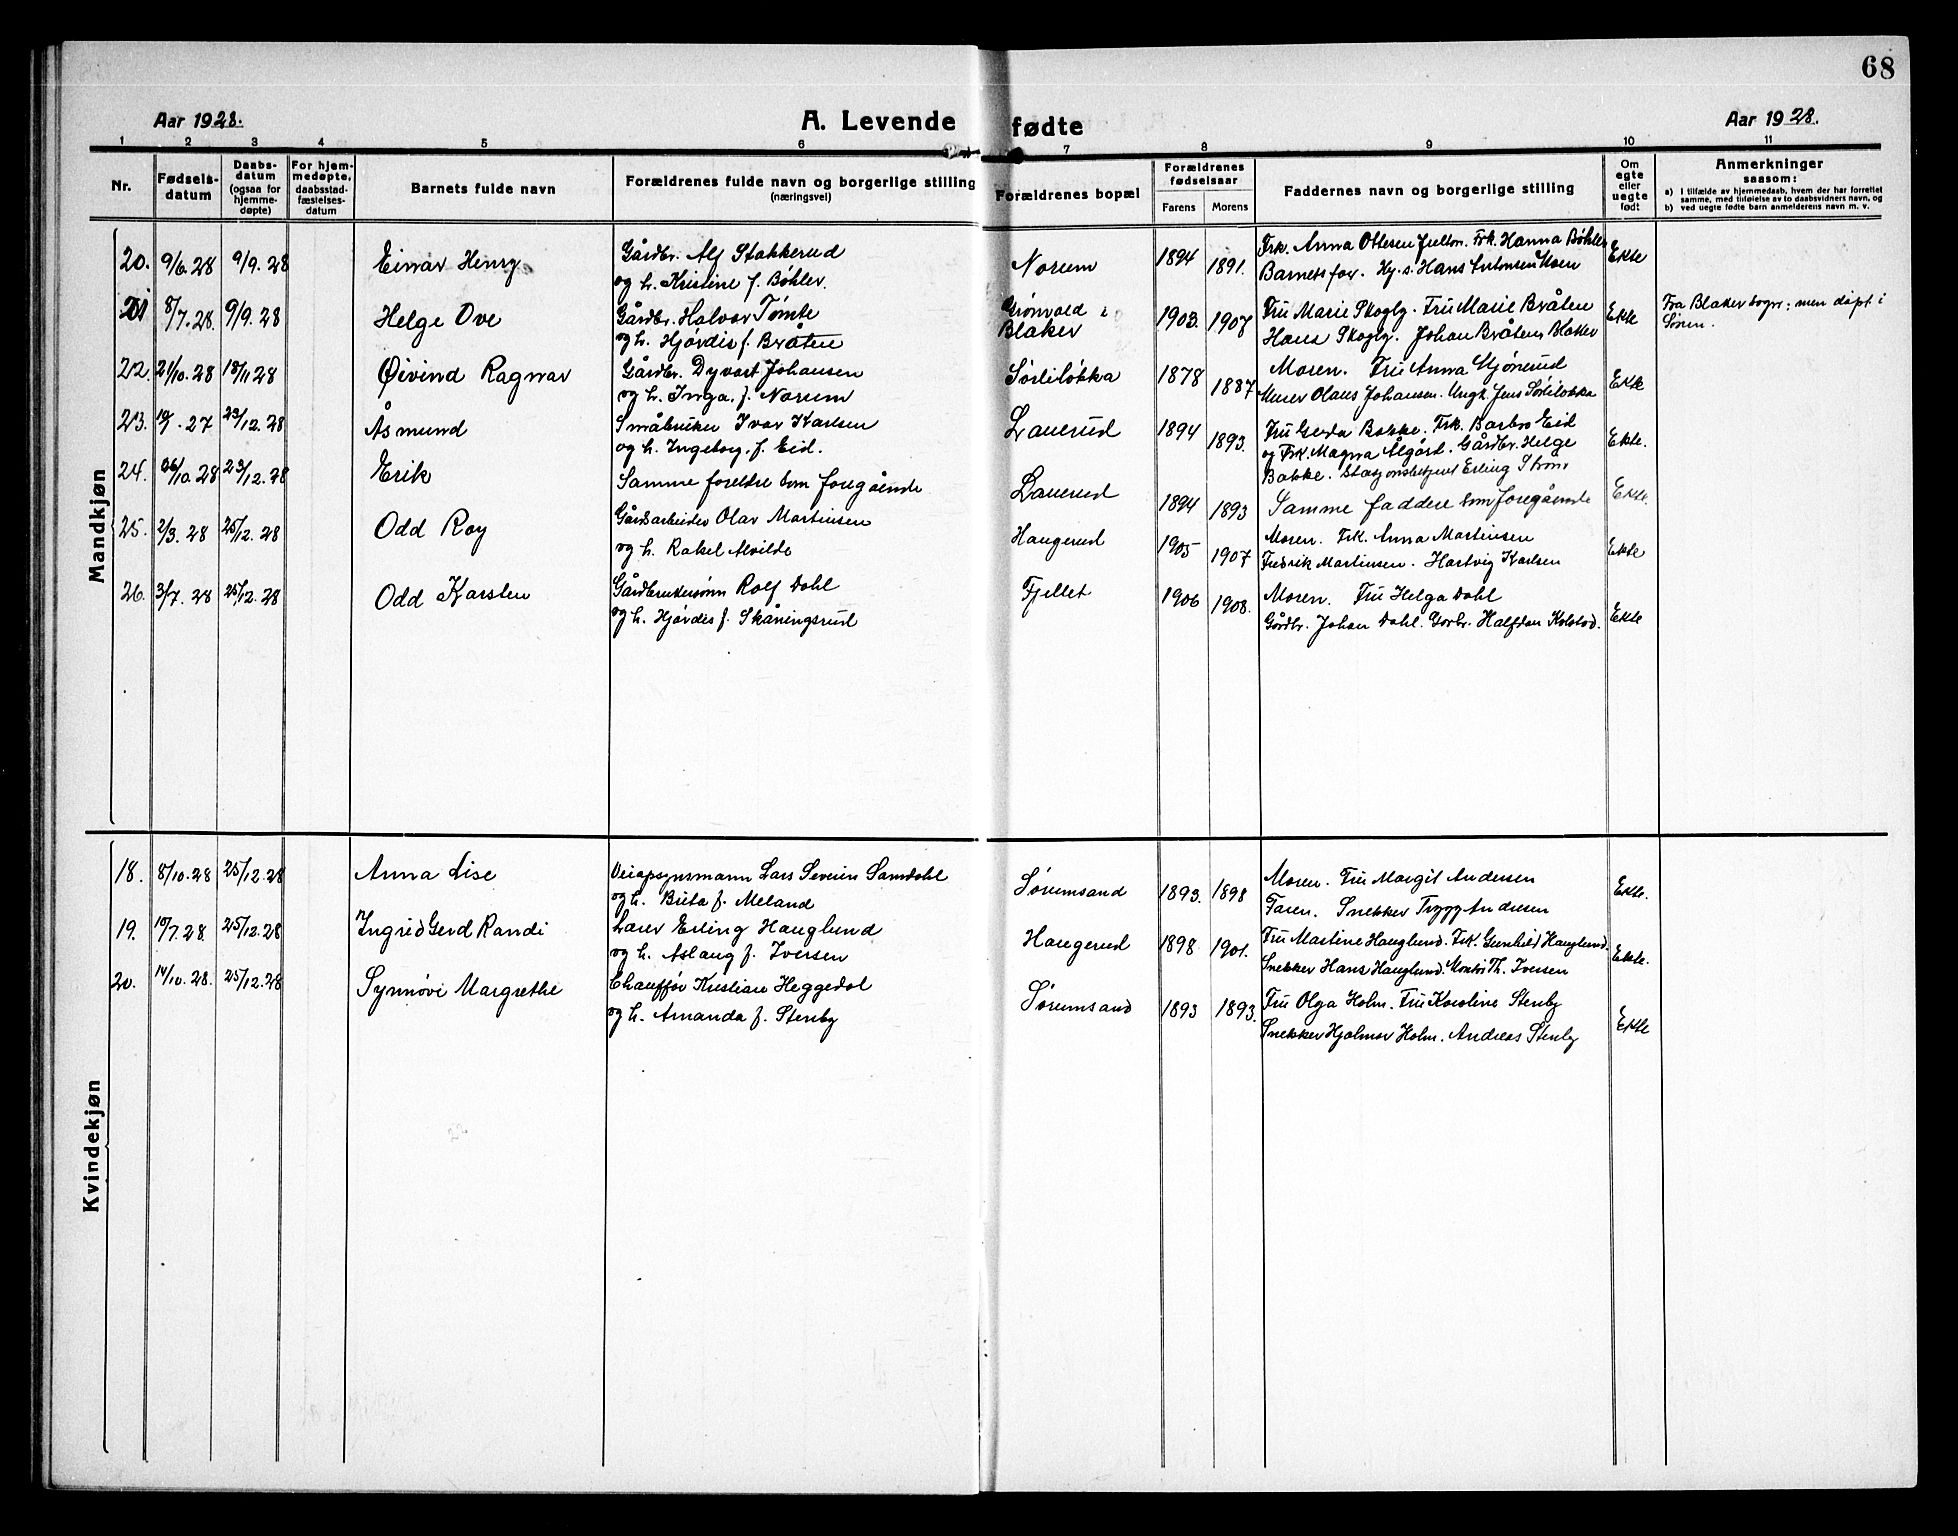 68
Aar 1928.
A. Levende fødte
Aar 1928.
1 2 3 4 5 6 7 8 9 10 11
Nr.
Fødselsdatum
Daabsdatum (ogsaa for hjemmedøpte)
For hjemmedøpte, daabsstadfæstelsesdatum
Barnets fulde navn
Forældrenes fulde navn og borgerlige stilling (næringsvei)
Forældrenes bopæl
Forældrenes fødselsaar
Farens Morens
Faddernes navn og borgerlige stilling
Om egte eller uegte født
Anmerkninger saasom:
a) I tilfælde av hjemmedaab, hvem der har forrettet samme, med tilføielse av to daabsvidners navn, og
b) ved uegte fødte barn anmelderens navn m. v.
Mandkjøn
20. 9/6.28 9/9.28 Einar Henry Gårdbr. Alf Stakkerud Norum 1894 1891. Frk. Anna Ottesen Frk. Hanna Bøhler Ekte
og h. Kristine f. Bøhler. Barnets far. Hans
21 8/7.28. 9/9.28 Helge Ove Gårdbr. Halvor Tømte Grønvold i 1903. 1907 Fru Marie Skogly. Fru Marie Bråten Ekte Fra Blaker sogn; men døpt i
og h. Hjørdis f. Bråten Blaker Hans Skogly. Johan Bråten Blaker
22. 21/10.28 18/11 28 Øivind Ragnar Gårdbr. Dyvart Johansen Sørliløkka 1878 1887 Moren. Fru Anna Mjønerud Ekte
og h. Inga. f. Norum Murer Olaus Johansen. Ungk. Jens Sørliløkka
23. 27 23/12.28 Åsmund Småbruker Ivar Karlsen Lauerud 1894 1893. Fru Gerda Bakke. Frk. Barbro Eid Ekte.
og h. Ingeborg. f. Eid. og Frk. Magna Ålgård. Gårdbr. Helge
24. 26/10.28 23/12.28 Erik Samme foreldre som foregående Lauerud 1894 1893 Bakke. Stasjonsbetjent Erling Strøm Ekte.
Samme faddere som foregående
25. 2/3.28 25/12.28 Odd Roy Gårdsarbeider Olav Martinsen Haugerud 1905 1907 Moren. Frk. Anna Martinsen Ekte
og h. Rakel Alvilde Fredrik Martinsen. Hartvig Karlsen
26. 3/7.28 25/12.28 Odd Karsten Gårdbrukersønn Rolf Dahl Fjellet 1906 1908. Moren. Fru Helga Dahl Ekte
og h. Hjørdis f. Skåningsrud Gårdbr. Johan Dahl. Halfdan Kolstad.
Kvindekjøn
18. 8/10.28 25/12.28 Anna Lise Veiopsynsmann Lars Severin Samdahl Sørumsand 1893. 1898 Moren. Fru Margit Andersen Ekte.
og h. Brita f. Meland Faren. Snekker Trygg Andersen
19. 10/7.28. 25/12.28 Ingrid Gerd Randi Lærer Erling Hauglund Haugerud 1898 1901. Fru Martine Hauglund. Frk. Gunhild Hauglund. Ekte.
og h. Aslaug f. Iversen Snekker Hans Hauglund. Th. Iversen
20. 14/10.28. 25/12.28 Synnøve Margrethe Chauffør Kristian Heggedal Sørumsand 1893 1893. Fru Olga Holm. Fru Karoline Stenby Ekte
og h. Amanda f. Stenby Snekker Hjalmar Holm. Andreas Stenby